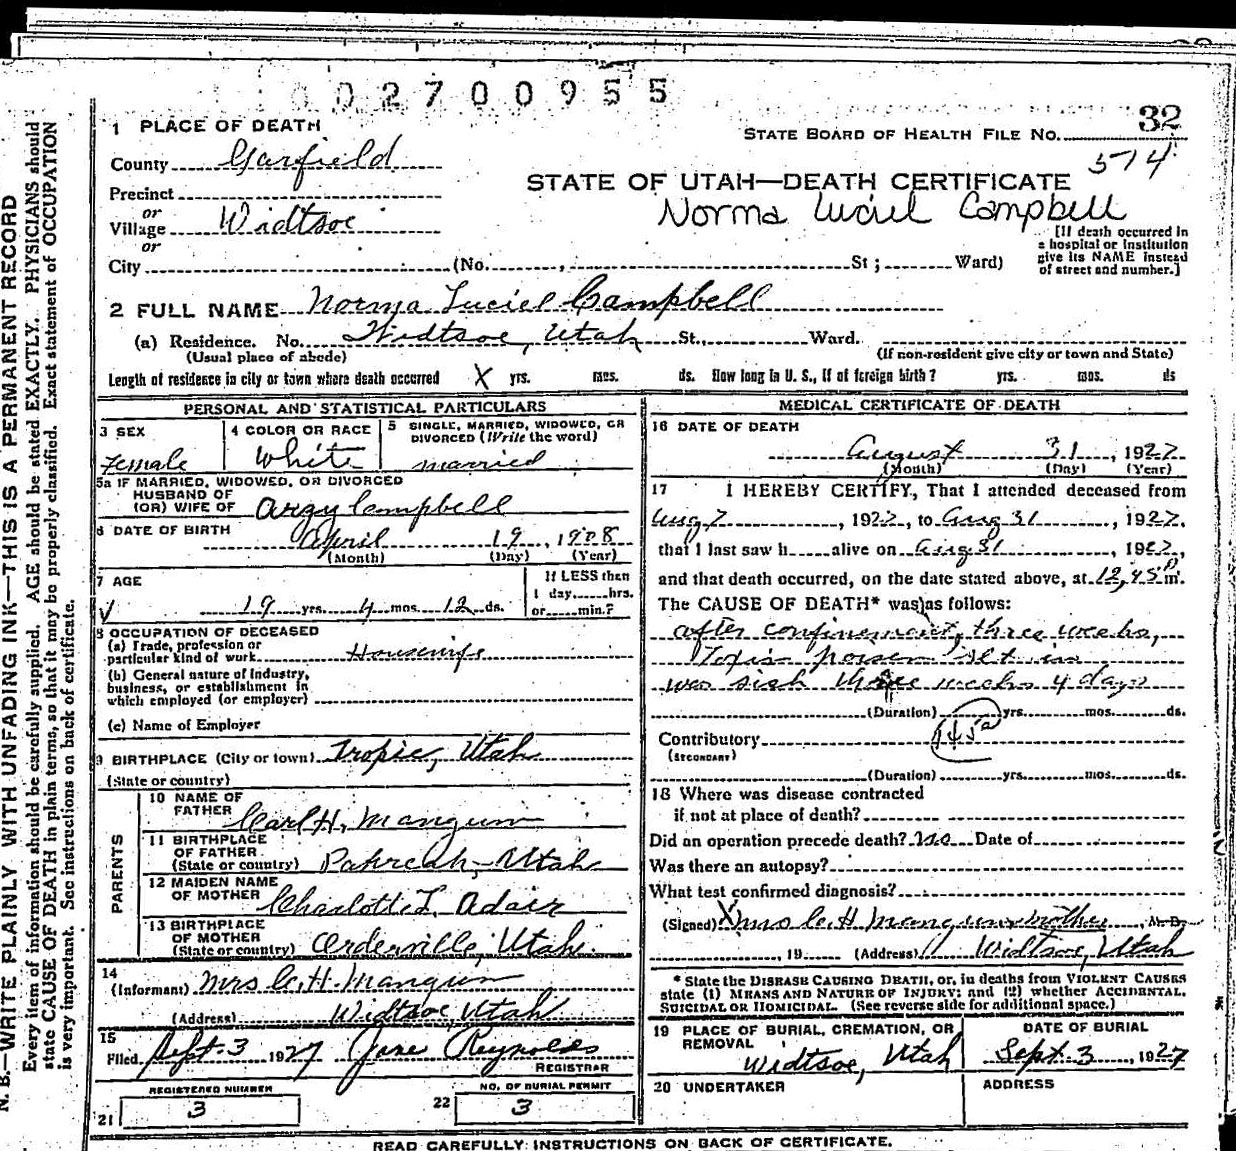 002700955
1 PLACE OF DEATH
STATE BOARD OF HEALTH FILE NO. 32
574
County Garfield
STATE OF UTAH—DEATH CERTIFICATE
Precinct
Norma Luciel Campbell
or
Village Widtsoe
or
[If death occurred in
a hospital or institution
give its NAME instead
of street and number.]
City (No. , St ; Ward)
2 FULL NAME Norma Luciel Campbell
(a) Residence. No. Widtsoe, Utah St., Ward.
(Usual place of abode) (If non-resident give city or town and State)
Length of residence in city or town where death occurred X yrs. mos. ds. How long in U. S., if of foreign birth? yrs. mos. ds
PERSONAL AND STATISTICAL PARTICULARS
3 SEX
Female
4 COLOR OR RACE
White
5 SINGLE, MARRIED, WIDOWED, OR
DIVORCED (Write the word)
married
5a IF MARRIED, WIDOWED, OR DIVORCED
HUSBAND OF
(OR) WIFE OF Argy Campbell
6 DATE OF BIRTH
April 19, 1908
(Month) (Day) (Year)
7 AGE
19 yrs. 4 mos. 12 ds.
If LESS than
1 day, hrs.
or min.?
8 OCCUPATION OF DECEASED
(a) Trade, profession or
particular kind of work Housewife
(b) General nature of industry,
business, or establishment in
which employed (or employer)
(c) Name of Employer
9 BIRTHPLACE (City or town) Tropic, Utah
(State or country)
PARENTS
10 NAME OF
FATHER Carl H. Mangum
11 BIRTHPLACE
OF FATHER
(State or country) Pahreah, Utah
12 MAIDEN NAME
OF MOTHER Charlotte L. Adair
13 BIRTHPLACE
OF MOTHER
(State or country) Orderville, Utah.
14
(Informant) Mrs C. H. Mangum
(Address) Widtsoe, Utah
15
Filed Sept. 3 1927 Jane Reynolds
REGISTRAR
REGISTERED NUMBER
21 3
NO. OF BURIAL PERMIT
22 3
MEDICAL CERTIFICATE OF DEATH
16 DATE OF DEATH
August 31, 1927
(Month) (Day) (Year)
17 I HEREBY CERTIFY, That I attended deceased from
Aug 7, 1927, to Aug 31, 1927,
that I last saw h alive on Aug 31, 1927,
and that death occurred, on the date stated above, at 12,45 P m.
The CAUSE OF DEATH* was as follows:
after confinement, three weeks,
Toxin poison set in
was sick three weeks 4 days
(Duration) yrs. mos. ds.
Contributory 145a
(SECONDARY)
(Duration) yrs. mos. ds.
18 Where was disease contracted
if not at place of death?
Did an operation precede death? no Date of
Was there an autopsy?
What test confirmed diagnosis?
(Signed) X Mrs C. H. Mangum, mother, M. D.
, 19 (Address) Widtsoe, Utah
* State the DISEASE CAUSING DEATH, or, in deaths from VIOLENT CAUSES
state (1) MEANS AND NATURE OF INJURY; and (2) whether ACCIDENTAL,
SUICIDAL OR HOMICIDAL. (See reverse side for additional space.)
19 PLACE OF BURIAL, CREMATION, OR
REMOVAL
Widtsoe, Utah
DATE OF BURIAL
Sept. 3, 1927
20 UNDERTAKER
ADDRESS
READ CAREFULLY INSTRUCTIONS ON BACK OF CERTIFICATE.
N. B.—WRITE PLAINLY WITH UNFADING INK—THIS IS A PERMANENT RECORD
Every item of information should be carefully supplied. AGE should be stated EXACTLY. PHYSICIANS should
state CAUSE OF DEATH in plain terms, so that it may be properly classified. Exact statement of OCCUPATION
is very important. See instructions on back of certificate.